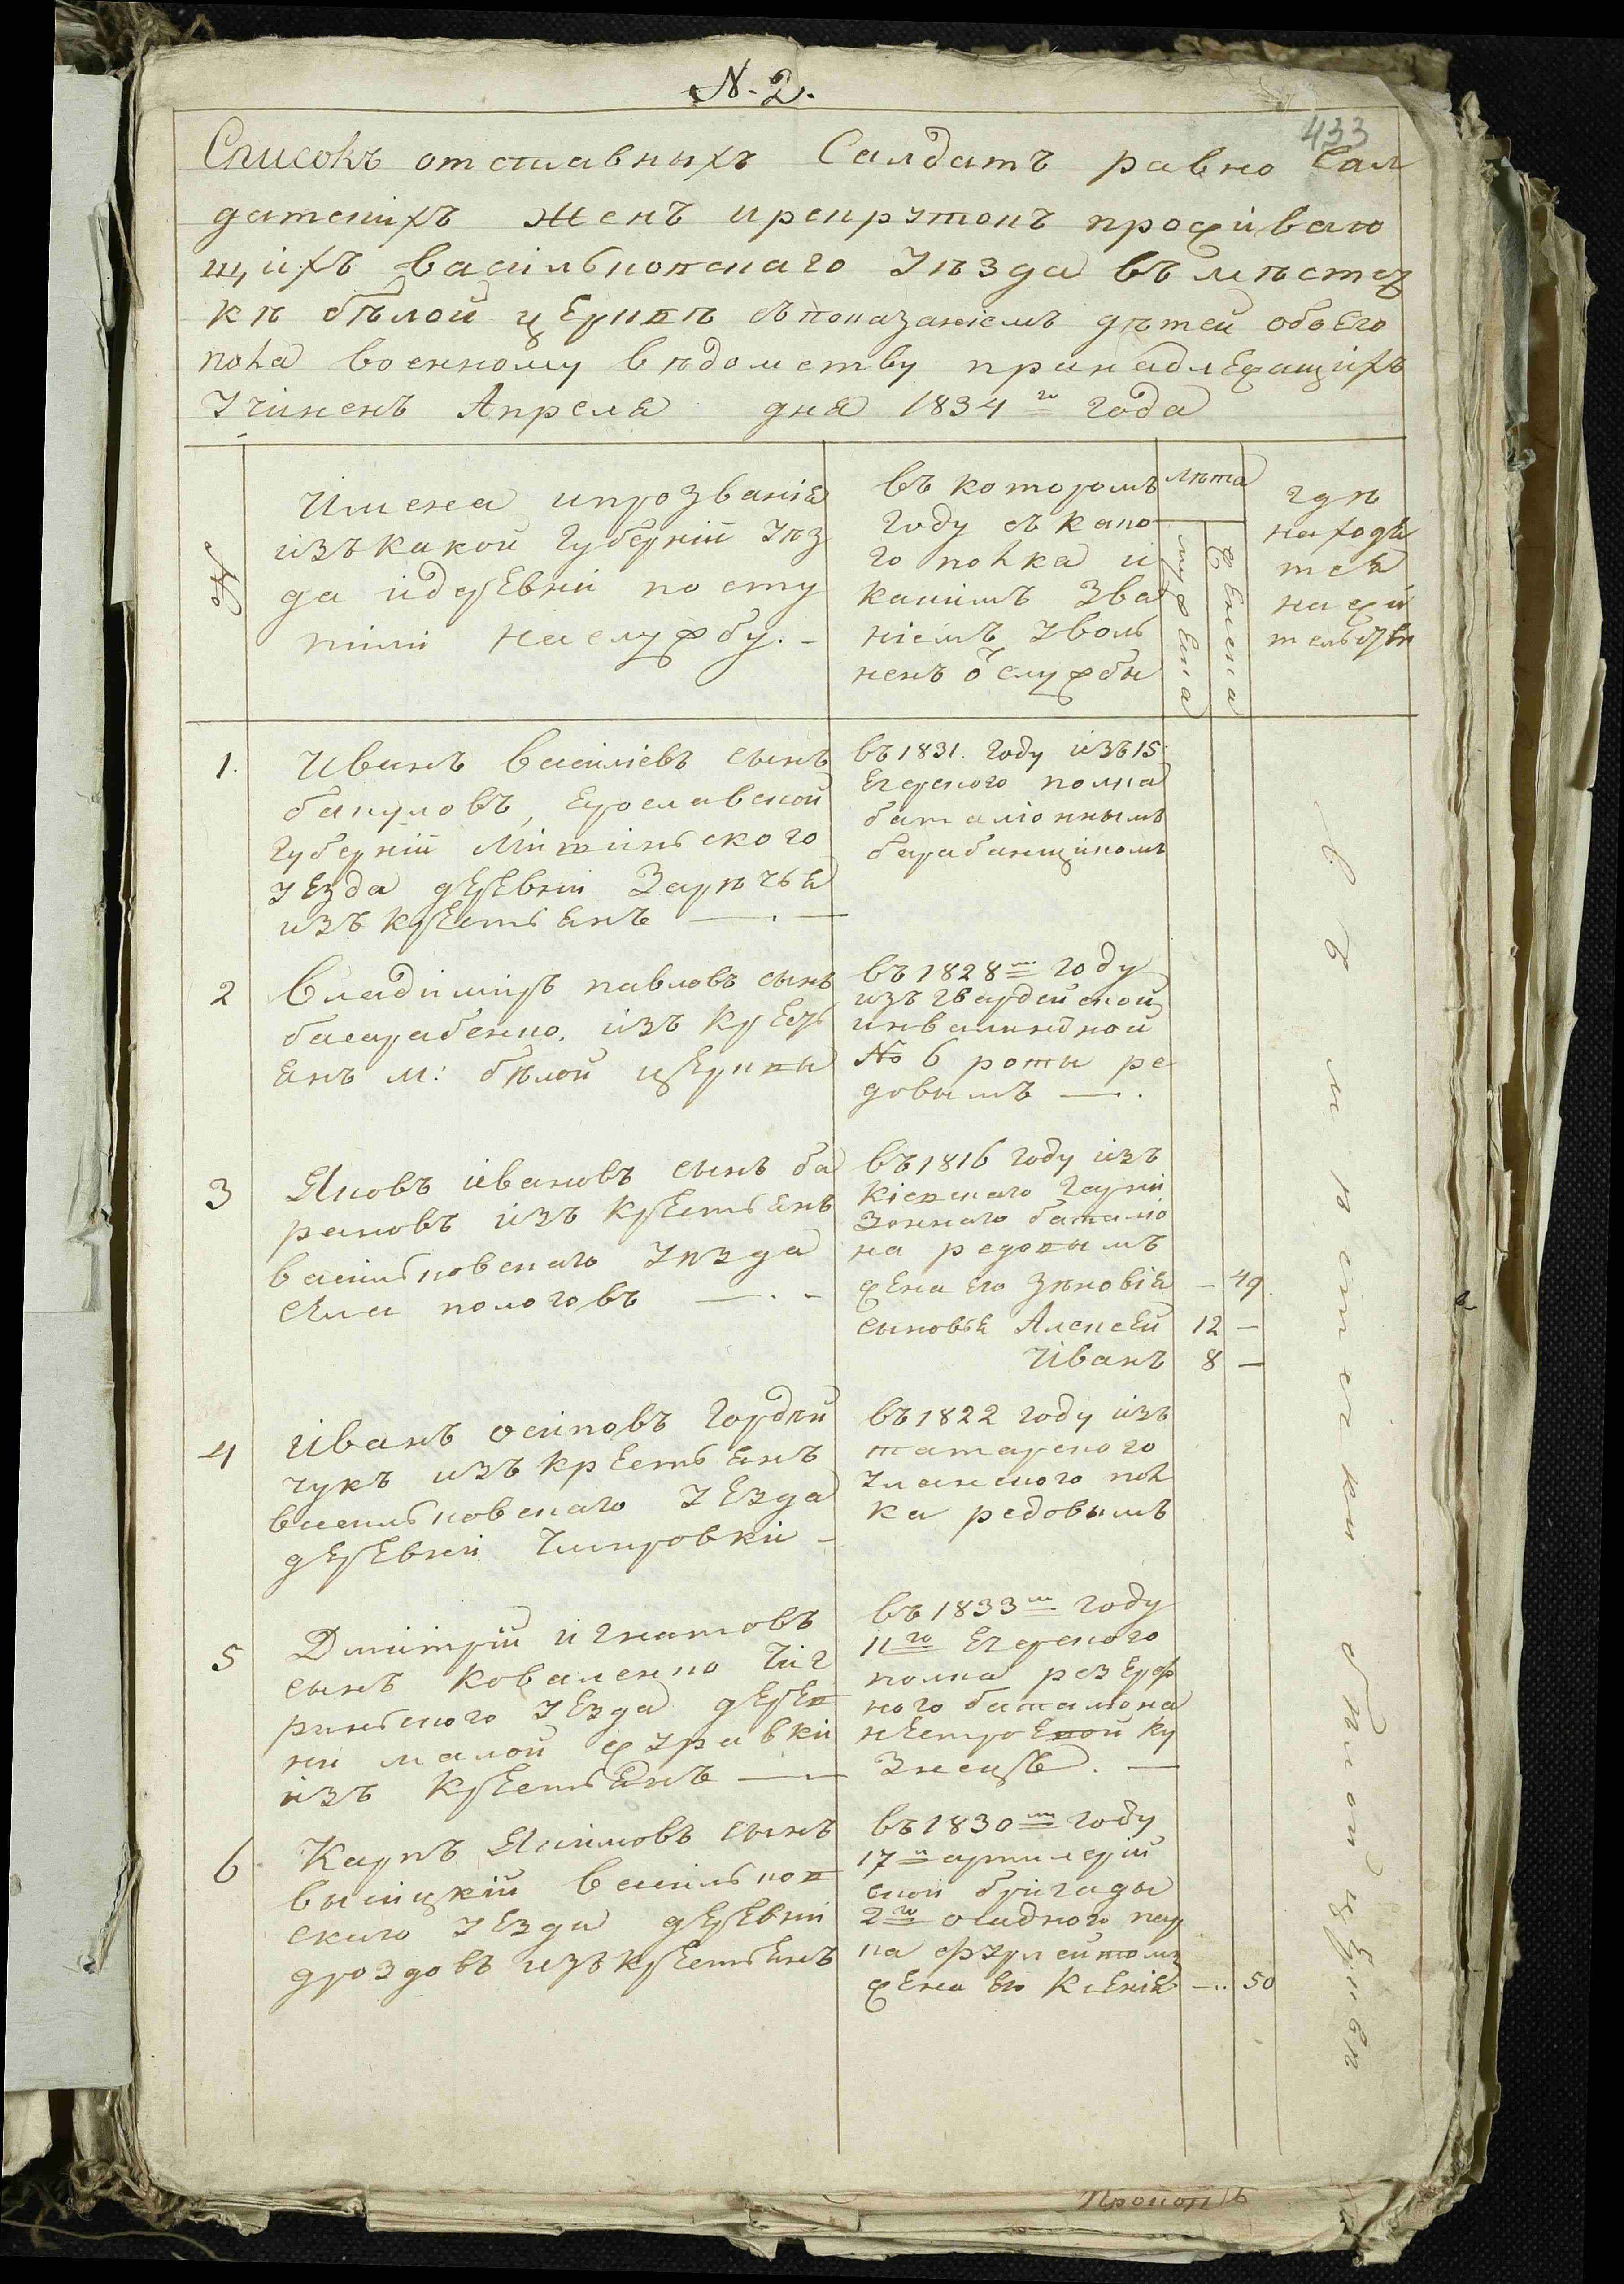 N. 2.
433
Списокъ отставныхъ Салдатъ равно Сал
датскихъ женъ ирекрутовъ прожіваю
щихъ васильковскаго Уѣзда въ мѣстеч
кѣ бѣлой церквѣ съпоказаніемъ дѣтей обоего
пола военному вѣдомству принадлежащіхъ
Учиненъ Апреля дня 1834го года
№
Имена ипрозванія
изъ какой губерній Уѣз
да идеревни посту
піли наслужбу. -
въ которомъ
году съ како
го полка и
какимъ Зва
ніемъ Уволь
ненъ отъ службы
лѣта
мужеска
женска
гдѣ
находѣ
тся
на жи
тельствѣ
1.
Иванъ василіевъ сынъ
бакуловъ, Ерославской
губерній Мишкинского
Уезда деревни Зарѣчья
изъ крестьянъ — . —
въ 1831. году изъ 15.
Егерского полка
баталіоннымъ
барабанщикомъ
2
Владимиръ павловъ сынъ
басарабенко. изъ крест
янъ м: бѣлой церквы
въ 1828м году
изъ гвардейской
инвалиндной
№ 6 роты ре
довымъ — .
3
Яковъ ивановъ сынъ ба
рановъ изъ крестьянъ
васильковскаго Уѣзда
села пологовъ — . -
въ 1816 году изъ
кіевскаго Гарни
зоннаго баталіо
на редовымъ
жена его Зѣновія — 49
сыновья Алексей 12 —
Иванъ 8 —
4
Иванъ осиповъ Гордѣй
чукъ изъ крестьянъ
васильковскаго Уезда
деревни Чмировки —
въ 1822 году изъ
татарского
Уланского пол
ка редовымъ
5
Дмитрій игнатовъ
сынъ коваленко Чіг
ринского Уезда дерев
ни малой журавки
изъ крестьянъ —
въ 1833м году
11го Егерского
полка резерф
ного баталіона
нестроевой ку
знецъ. —
6
Карпъ Якимовъ сынъ
высицкій васильков
скаго Уезда деревни
дроздовъ изъ крестьянъ
въ 1830м году
17й артилерій
ской бригады
2го осадного пар
ка фурлейтомъ
жена его Ксенія — 50
Въ мѣстечки бѣлой церкви